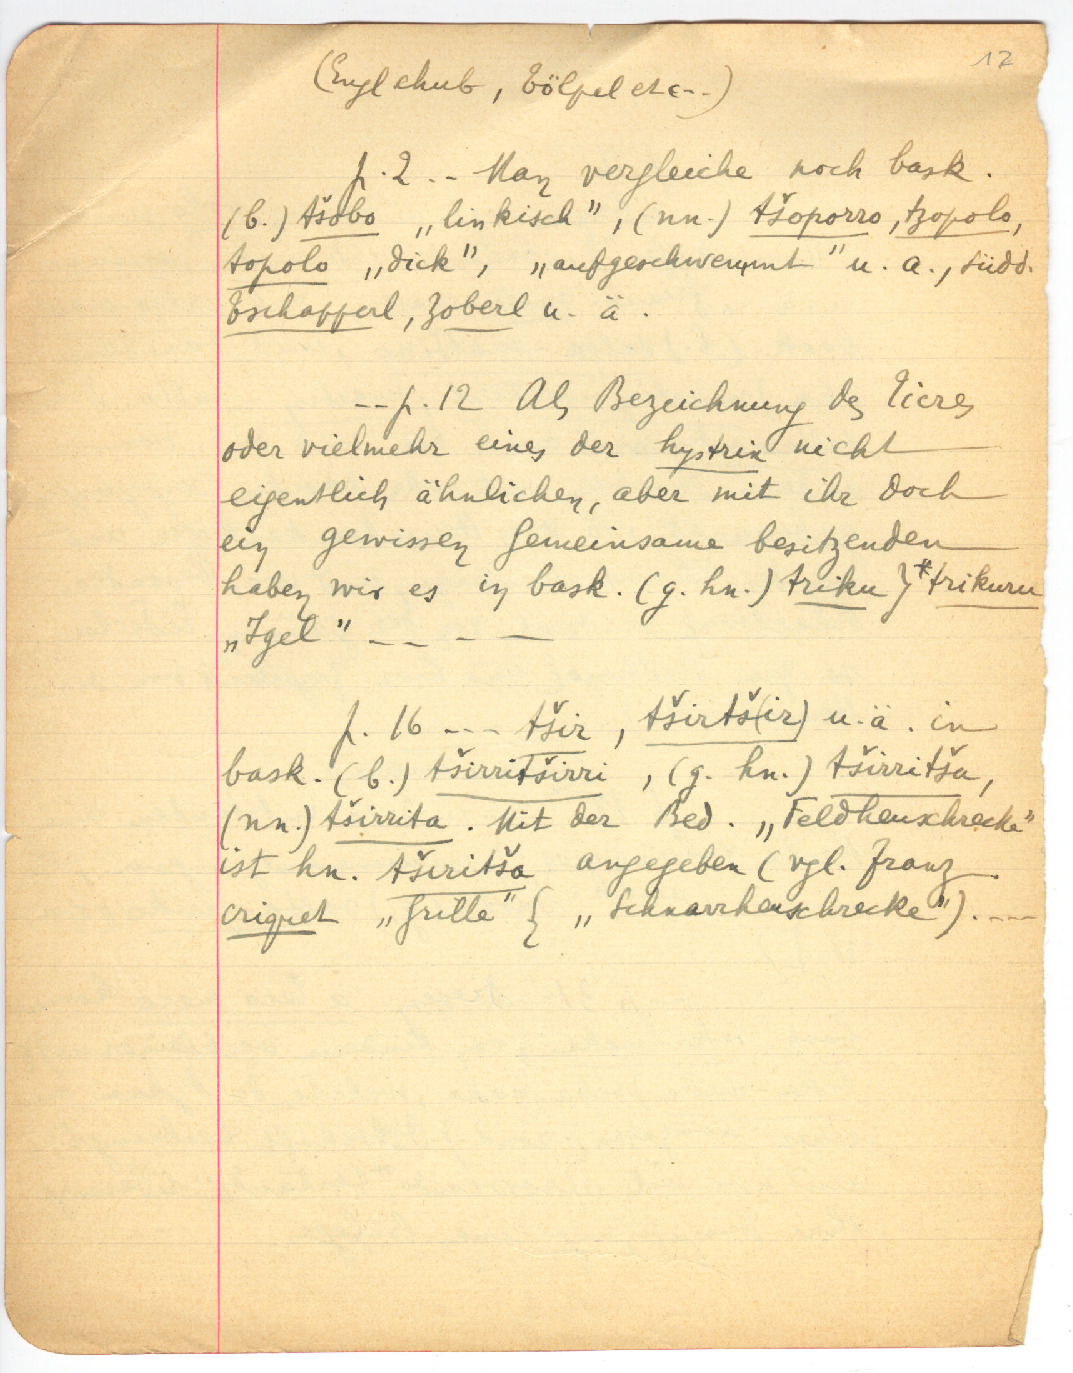 17
(Engl chub, Tölpel etc--)
p. 2 .-- Man vergleiche noch bask.
(b.) tšobo „linkisch”, (nn.) tšoporro, tzopolo,
topolo „dick”, „aufgeschwemmt” u. a., südd.
Tschapperl, Zoberl u. ä.
-- p. 12 Als Bezeichnung des Tieres
oder vielmehr eines der hystrix nicht
eigentlich ähnlichen, aber mit ihr doch
ein gewissen Gemeinsame besitzenden
haben wir es in bask. (g. hn.) triku } *trikuru
„Igel” -- -- - --
p. 16 --- tšir, tširtš(ir) u. ä. in
bask. (b.) tširritširri, (g. hn.) tširritša,
(nn.) tširrita. Mit der Bed. „Feldheuschrecke”
ist hn. tširitša angegeben (vgl. franz.
criquet „Grille” { „Schnarrheuschrecke”). ---